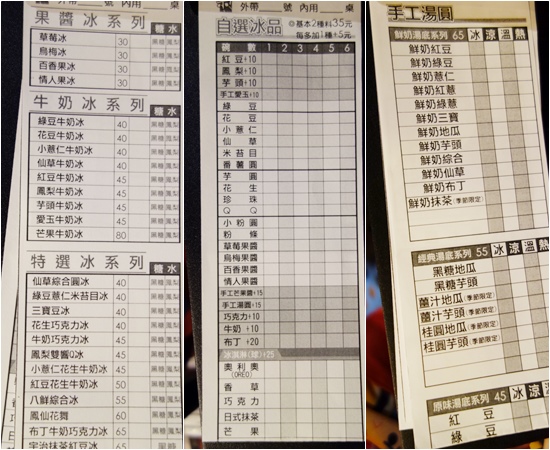 外帶 號 內用 桌
果醬冰系列 糖水
草莓冰 30 黑糖 鳳梨
烏梅冰 30 黑糖 鳳梨
百香果冰 30 黑糖 鳳梨
情人果冰 30 黑糖 鳳梨
牛奶冰系列 糖水
綠豆牛奶冰 40 黑糖 鳳梨
花豆牛奶冰 40 黑糖 鳳梨
小薏仁牛奶冰 40 黑糖 鳳梨
仙草牛奶冰 40 黑糖 鳳梨
紅豆牛奶冰 45 黑糖 鳳梨
鳳梨牛奶冰 45 黑糖 鳳梨
芋頭牛奶冰 45 黑糖 鳳梨
愛玉牛奶冰 45 黑糖 鳳梨
芒果牛奶冰 80 黑糖 鳳梨
特選冰系列 糖水
仙草綜合圓冰 40 黑糖 鳳梨
綠豆薏仁米苔目冰 40 黑糖 鳳梨
三寶豆冰 40 黑糖 鳳梨
花生巧克力冰 40 黑糖 鳳梨
牛奶巧克力冰 45 黑糖 鳳梨
鳳梨雙響Q冰 45 黑糖 鳳梨
小薏仁花生牛奶冰 45 黑糖 鳳梨
紅豆花生牛奶冰 50 黑糖 鳳梨
八鮮綜合冰 55 黑糖 鳳梨
鳳仙花舞 60 黑糖 鳳梨
布丁牛奶巧克力冰 65 黑糖 鳳梨
宇治抹茶紅豆冰 65 黑糖
外帶 號 內用 桌
自選冰品 ◎基本2種料35元
每多加1種+5元
碗數 1 2 3 4 5 6
紅豆+10
鳳梨+10
芋頭+10
手工愛玉+10
綠豆
花豆
小薏仁
仙草
米苔目
番薯圓
芋圓
花生
珍珠
QQ
小粉圓
粉條
草莓果醬
烏梅果醬
百香果醬
情人果醬
手工芒果醬+15
手工湯圓+15
巧克力+10
牛奶+10
布丁+20
冰淇淋(球)+25
奧利奧
(OREO)
香草
巧克力
日式抹茶
芒果
手工湯圓
鮮奶湯底系列 65 冰 涼 溫 熱
鮮奶紅豆
鮮奶綠豆
鮮奶薏仁
鮮奶紅薏
鮮奶綠薏
鮮奶三寶
鮮奶地瓜
鮮奶芋頭
鮮奶綜合
鮮奶仙草
鮮奶布丁
鮮奶抹茶(季節限定)
經典湯底系列 55 冰 涼 溫 熱
黑糖地瓜
黑糖芋頭
薑汁地瓜(季節限定)
薑汁芋頭(季節限定)
桂圓地瓜(季節限定)
桂圓芋頭(季節限定)
原味湯底系列 45 冰 涼 溫 熱
紅豆
綠豆